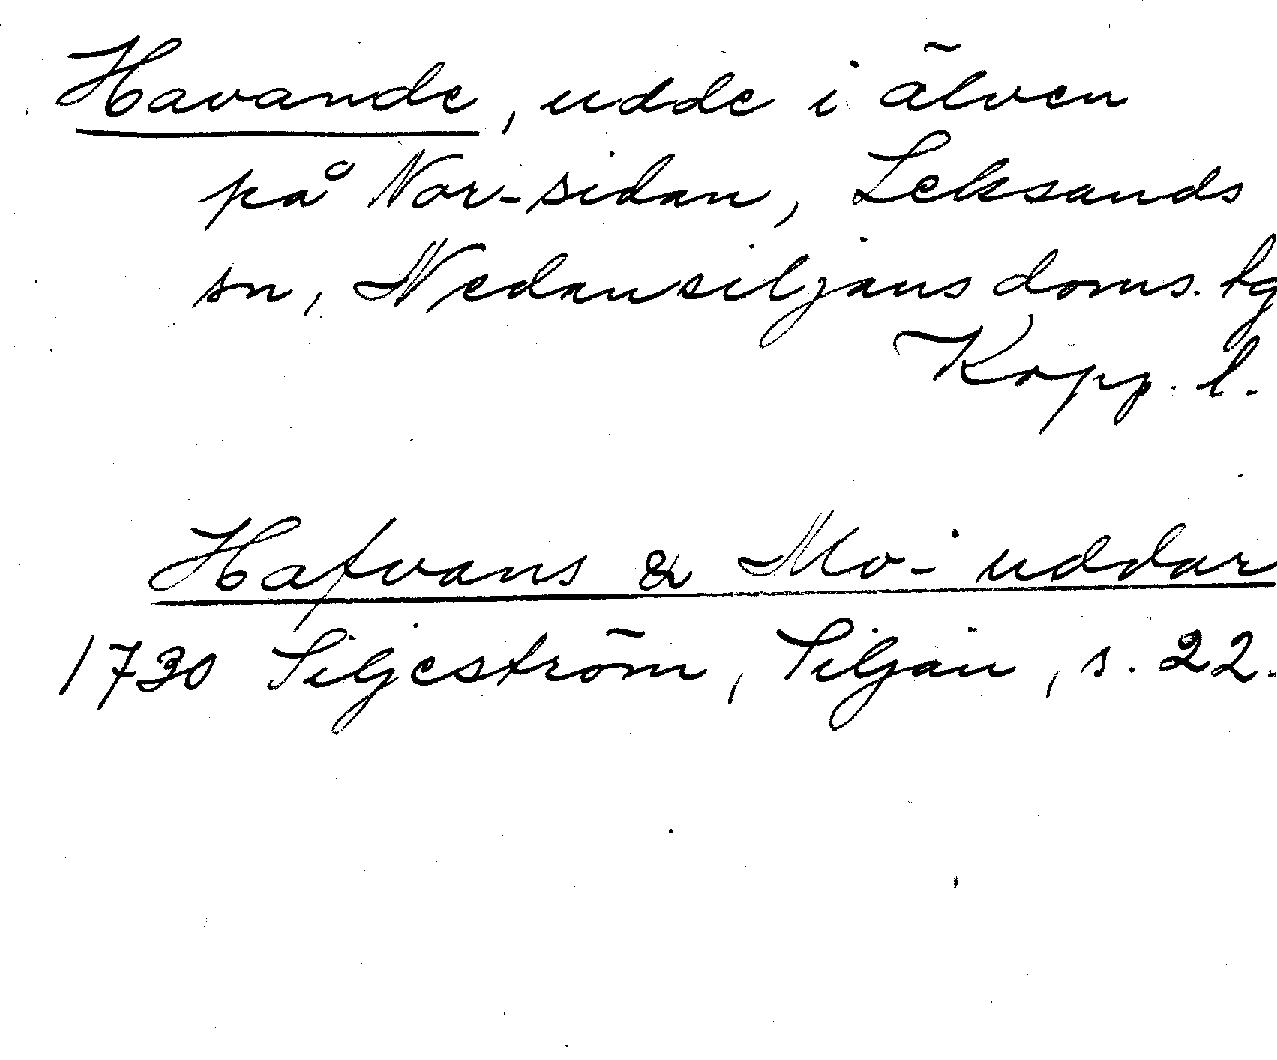 Havande, udde i älven
på Nor-sidan, Leksands
sn, Nedansiljans doms. tg
Kopp. l.
Hafvans & Mo-uddar
1730 Siljeström, Siljan, s. 22.